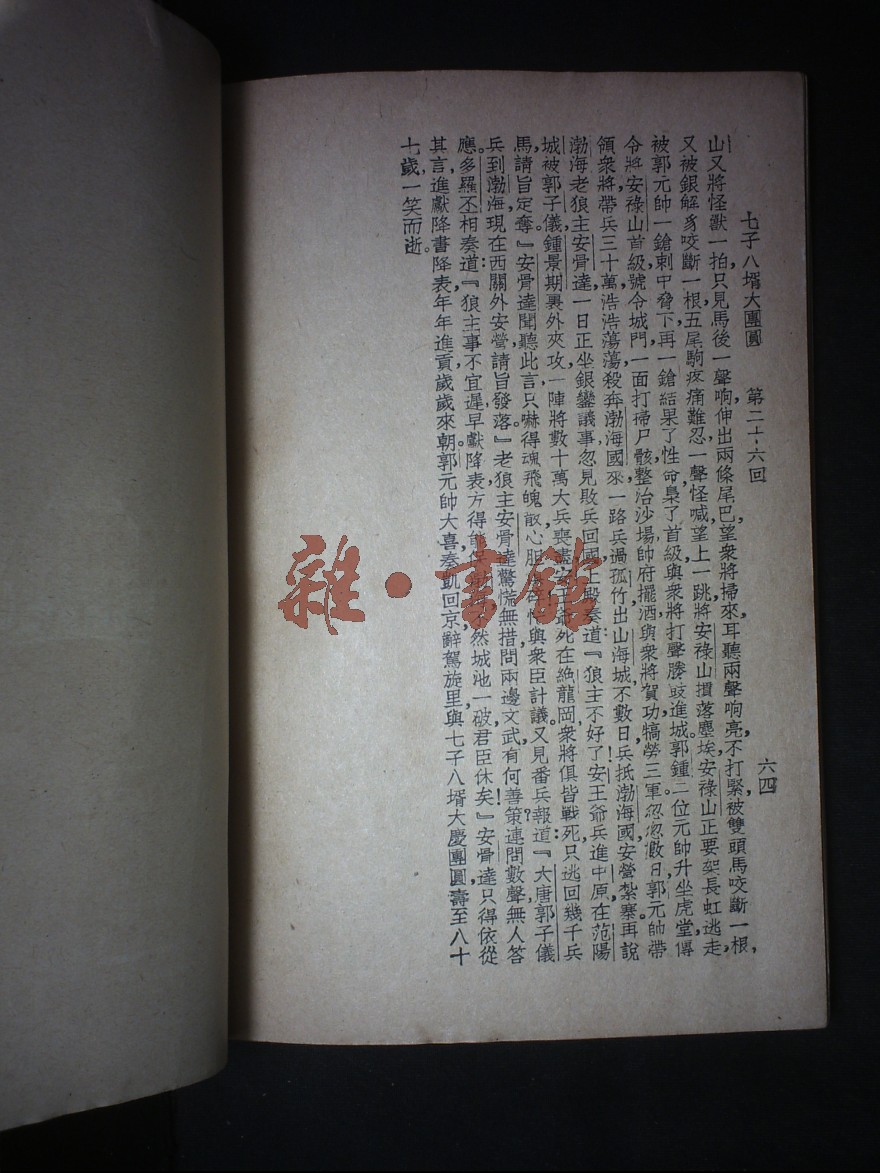 七子八壻大團圓 第二十六回 六四
山又將怪獸一拍只見馬後一聲响伸出兩條尾巴望衆將掃來耳聽兩聲响亮不打緊被雙頭馬咬斷一根
又被銀解豸咬斷一根五尾駒疼痛難忍一聲怪喊望上一跳將安祿山摜落塵埃安祿山正要架長虹逃走
被郭元帥一鎗刺中脅下再一鎗結果了性命梟了首級與衆將打得勝鼓進城郭鍾二位元帥升坐虎堂傳
令將安祿山首級號令城門一面打掃尸骸整治沙場帥府擺酒與衆將賀功犒勞三軍忽忽數日郭元帥帶
領衆將帶兵三十萬浩浩蕩蕩殺奔渤海國來一路兵過孤竹出山海城不數日兵抵渤海國安營紮寨再說
渤海老狼主安骨達一日正坐銀鑾議事忽見敗兵回國上殿奏道：『狼主不好了！安王爺兵進中原在范陽
城被郭子儀鍾景期裏外夾攻一陣將數十萬大兵喪盡安王爺死在絶龍岡衆將俱皆戰死只逃回幾千兵
馬請旨定奪』安骨達聞聽此言只嚇得魂飛魄散心胆與衆臣計議又見番兵報道：『大唐郭子儀
兵到渤海現在西關外安營請旨發落』老狼主安骨達驚慌無措問兩邊文武有何善策連問數聲無人答
應多羅丕相奏道：『狼主事不宜遲早獻降表方得能保不然城池一破君臣休矣！』安骨達只得依從
其言進獻降書降表年年進貢歲歲來朝郭元帥大喜奏凱回京辭駕旋里與七子八壻大慶團圓壽至八十
七歲一笑而逝。
雜·書館